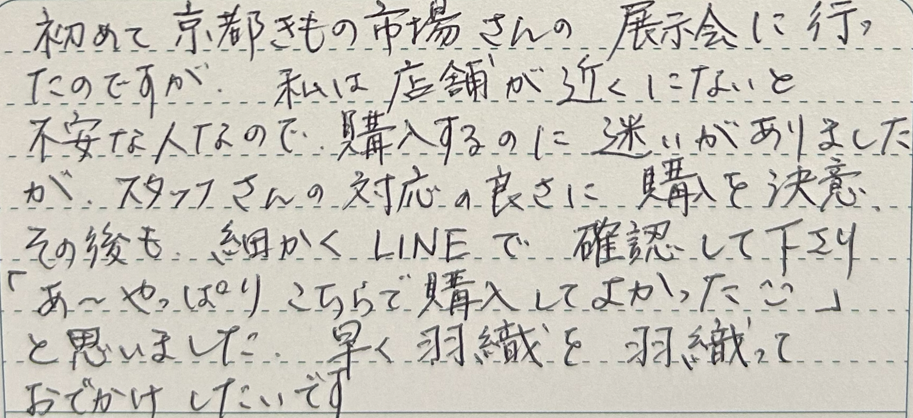 初めて京都きもの市場さんの 展示会に行っ
たのですが、私は店舗が近くにないと
不安な人なので、購入するのに迷いがありました
が、スタッフさんの対応の良さに 購入を決意、
その後も、細かくLINEで 確認して下さり
「あ〜やっぱりこちらで購入してよかった」
と思いました。早く羽織を羽織って
おでかけしたいです